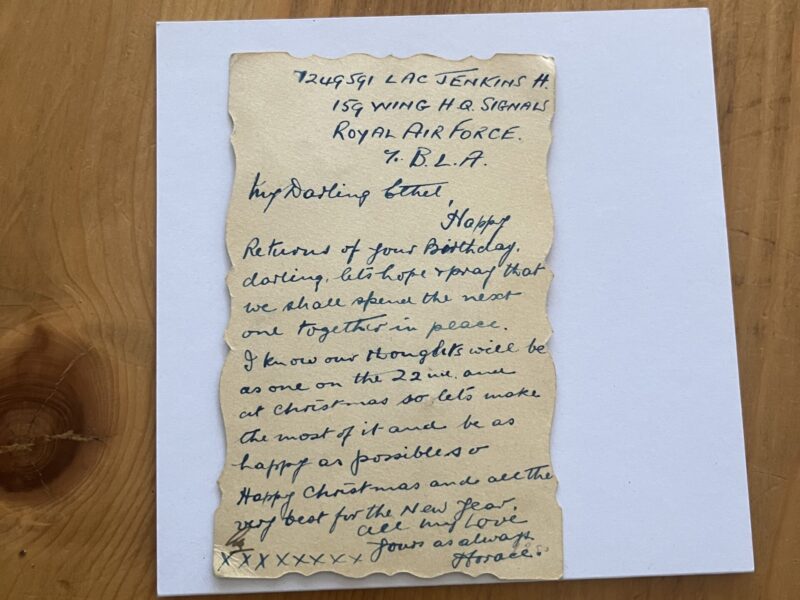 1249591 LAC JENKINS H.
159 WING H.Q. SIGNALS
ROYAL AIR FORCE.
% B.L.A.
My Darling Ethel,
Happy
Returns of your Birthday.
darling, lets hope & pray that
we shall spend the next
one together in peace.
I know our thoughts will be
as one on the 22nd. and
at Christmas so lets make
the most of it and be as
happy as possible so
Happy Christmas and all the
very best for the New Year.
all my love
Yours as always
x x x x x x x x Horace.